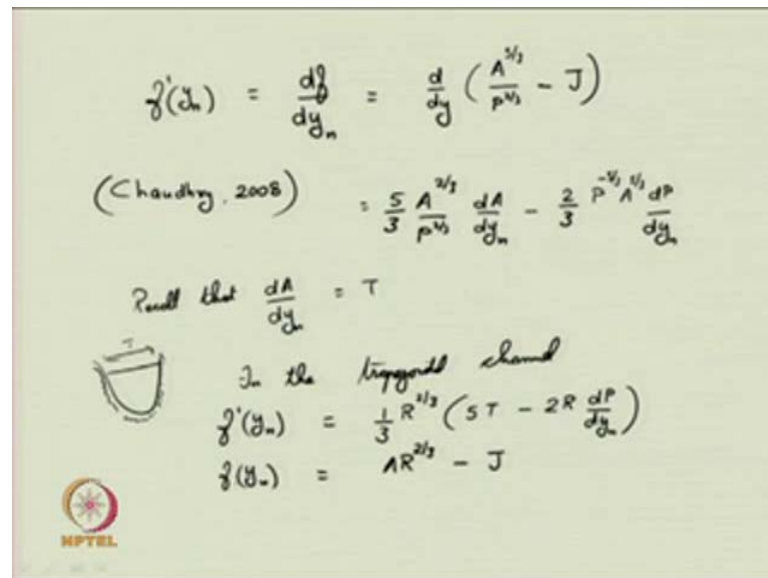 f'(yₙ) = df/dyₙ = d/dy (A^5/3 / P^2/3 - J)
(Chaudhry, 2008) = 5/3 A^2/3 / P^2/3 dA/dyₙ - 2/3 P^-5/3 A^5/3 dP/dyₙ
Recall that dA/dyₙ = T
T
In the trapezoidal channel
f'(yₙ) = 1/3 R^2/3 (5T - 2R dP/dyₙ)
f(yₙ) = AR^2/3 - J
NPTEL